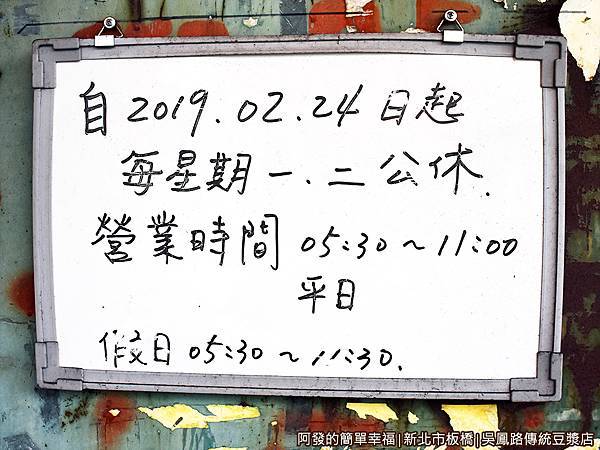 自2019.02.24日起
每星期一、二公休.
營業時間 05:30～11:00
平日
假日 05:30～11:30.
阿發的簡單幸福|新北市板橋|吳鳳路傳統豆漿店